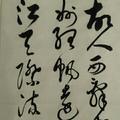 故人西辭
州孤帆遠
江天際流